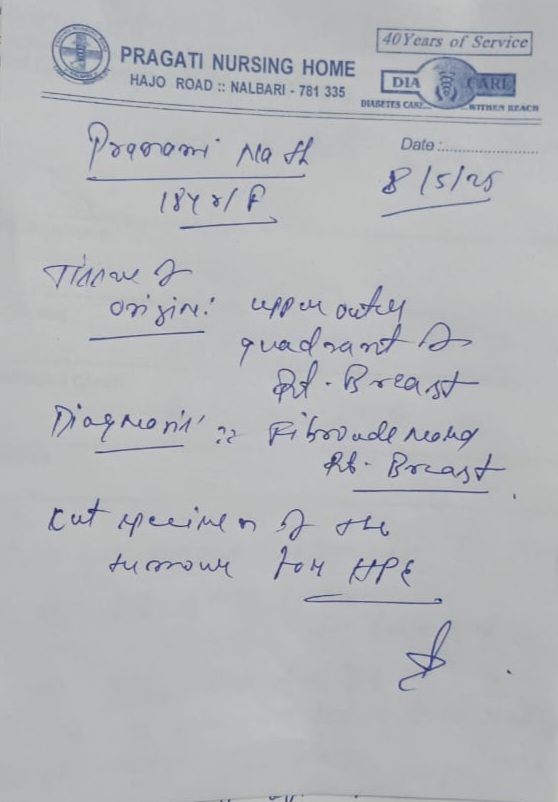 40 Years of Service
PRAGATI NURSING HOME
HAJO ROAD :: NALBARI - 781 335
DIA CARE
DIABETES CARE... WITHIN REACH
Date:
8/5/25
Nath
18 Yrs/F
Tissue of
origin: upper outer
quadrant of
Rt. Breast
Diagnosis :: Fibroadenoma
Rt. Breast
Cut specimen of the
tumour for HPE